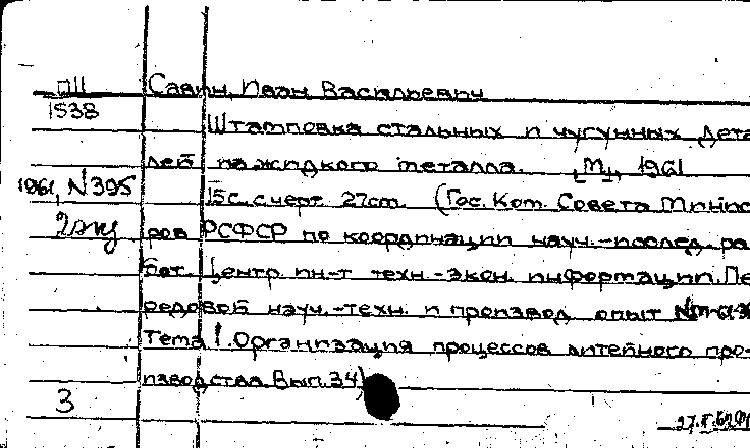 ПШ Савин, Иван Васильевич
1538
Штамповка стальных и чугунных дета-
лей из жидкого металла. [М.], 1961
1961, N395 15с. с черт. 27cm. (Гос. Ком. Совета Минист-
2экз ров РСФСР по координации науч.-исслед. ра-
бот. Центр. ин-т техн.-экон. информации. Пе-
редовой науч.-техн. и производ. опыт
Тема 1. Организация процессов литейного про-
изводства. Вып. 34)
3